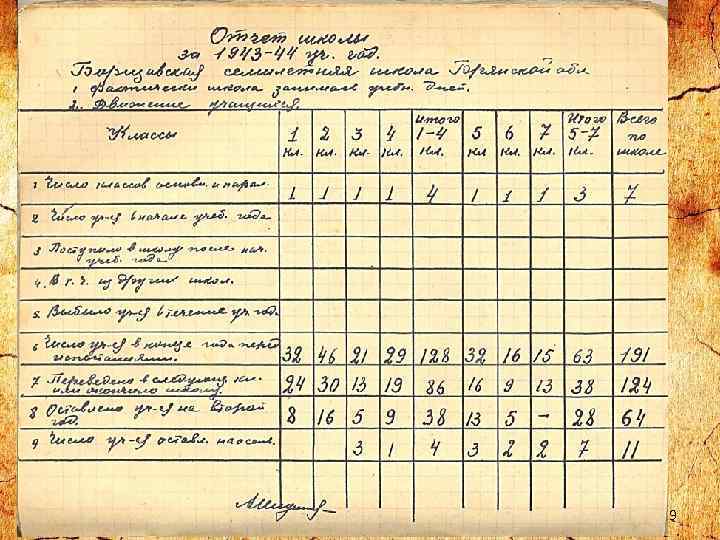 Отчет школы
за 1943-44 уч. год.
семилетняя школа обл
1 Фактически школа занимает учебн. дней.
2. Движение учащихся.
Классы 1 кл. 2 кл. 3 кл. 4 кл. итого 1-4 кл. 5 кл 6 кл. 7 кл. Итого 5-7 кл. Всего по школе
1 Число классов основн. и парал. 1 1 1 1 4 1 1 1 3 7
2 Число уч-ся в начале учеб. года
3 Поступило в школу после нач. учеб. года
4. В т. ч. из других школ.
5 Выбыло уч-ся в течение уч. год.
6 Число уч-ся в конце года перед испытаниями. 32 46 21 29 128 32 16 15 63 191
7 Переведено в следующий кл. или окончило школу. 24 30 13 19 86 16 9 13 38 124
8 Оставлено уч-ся на второй год. 8 16 5 9 38 13 5 – 28 64
9 Число уч-ся оставл. на осень. 3 1 4 3 2 2 7 11
9